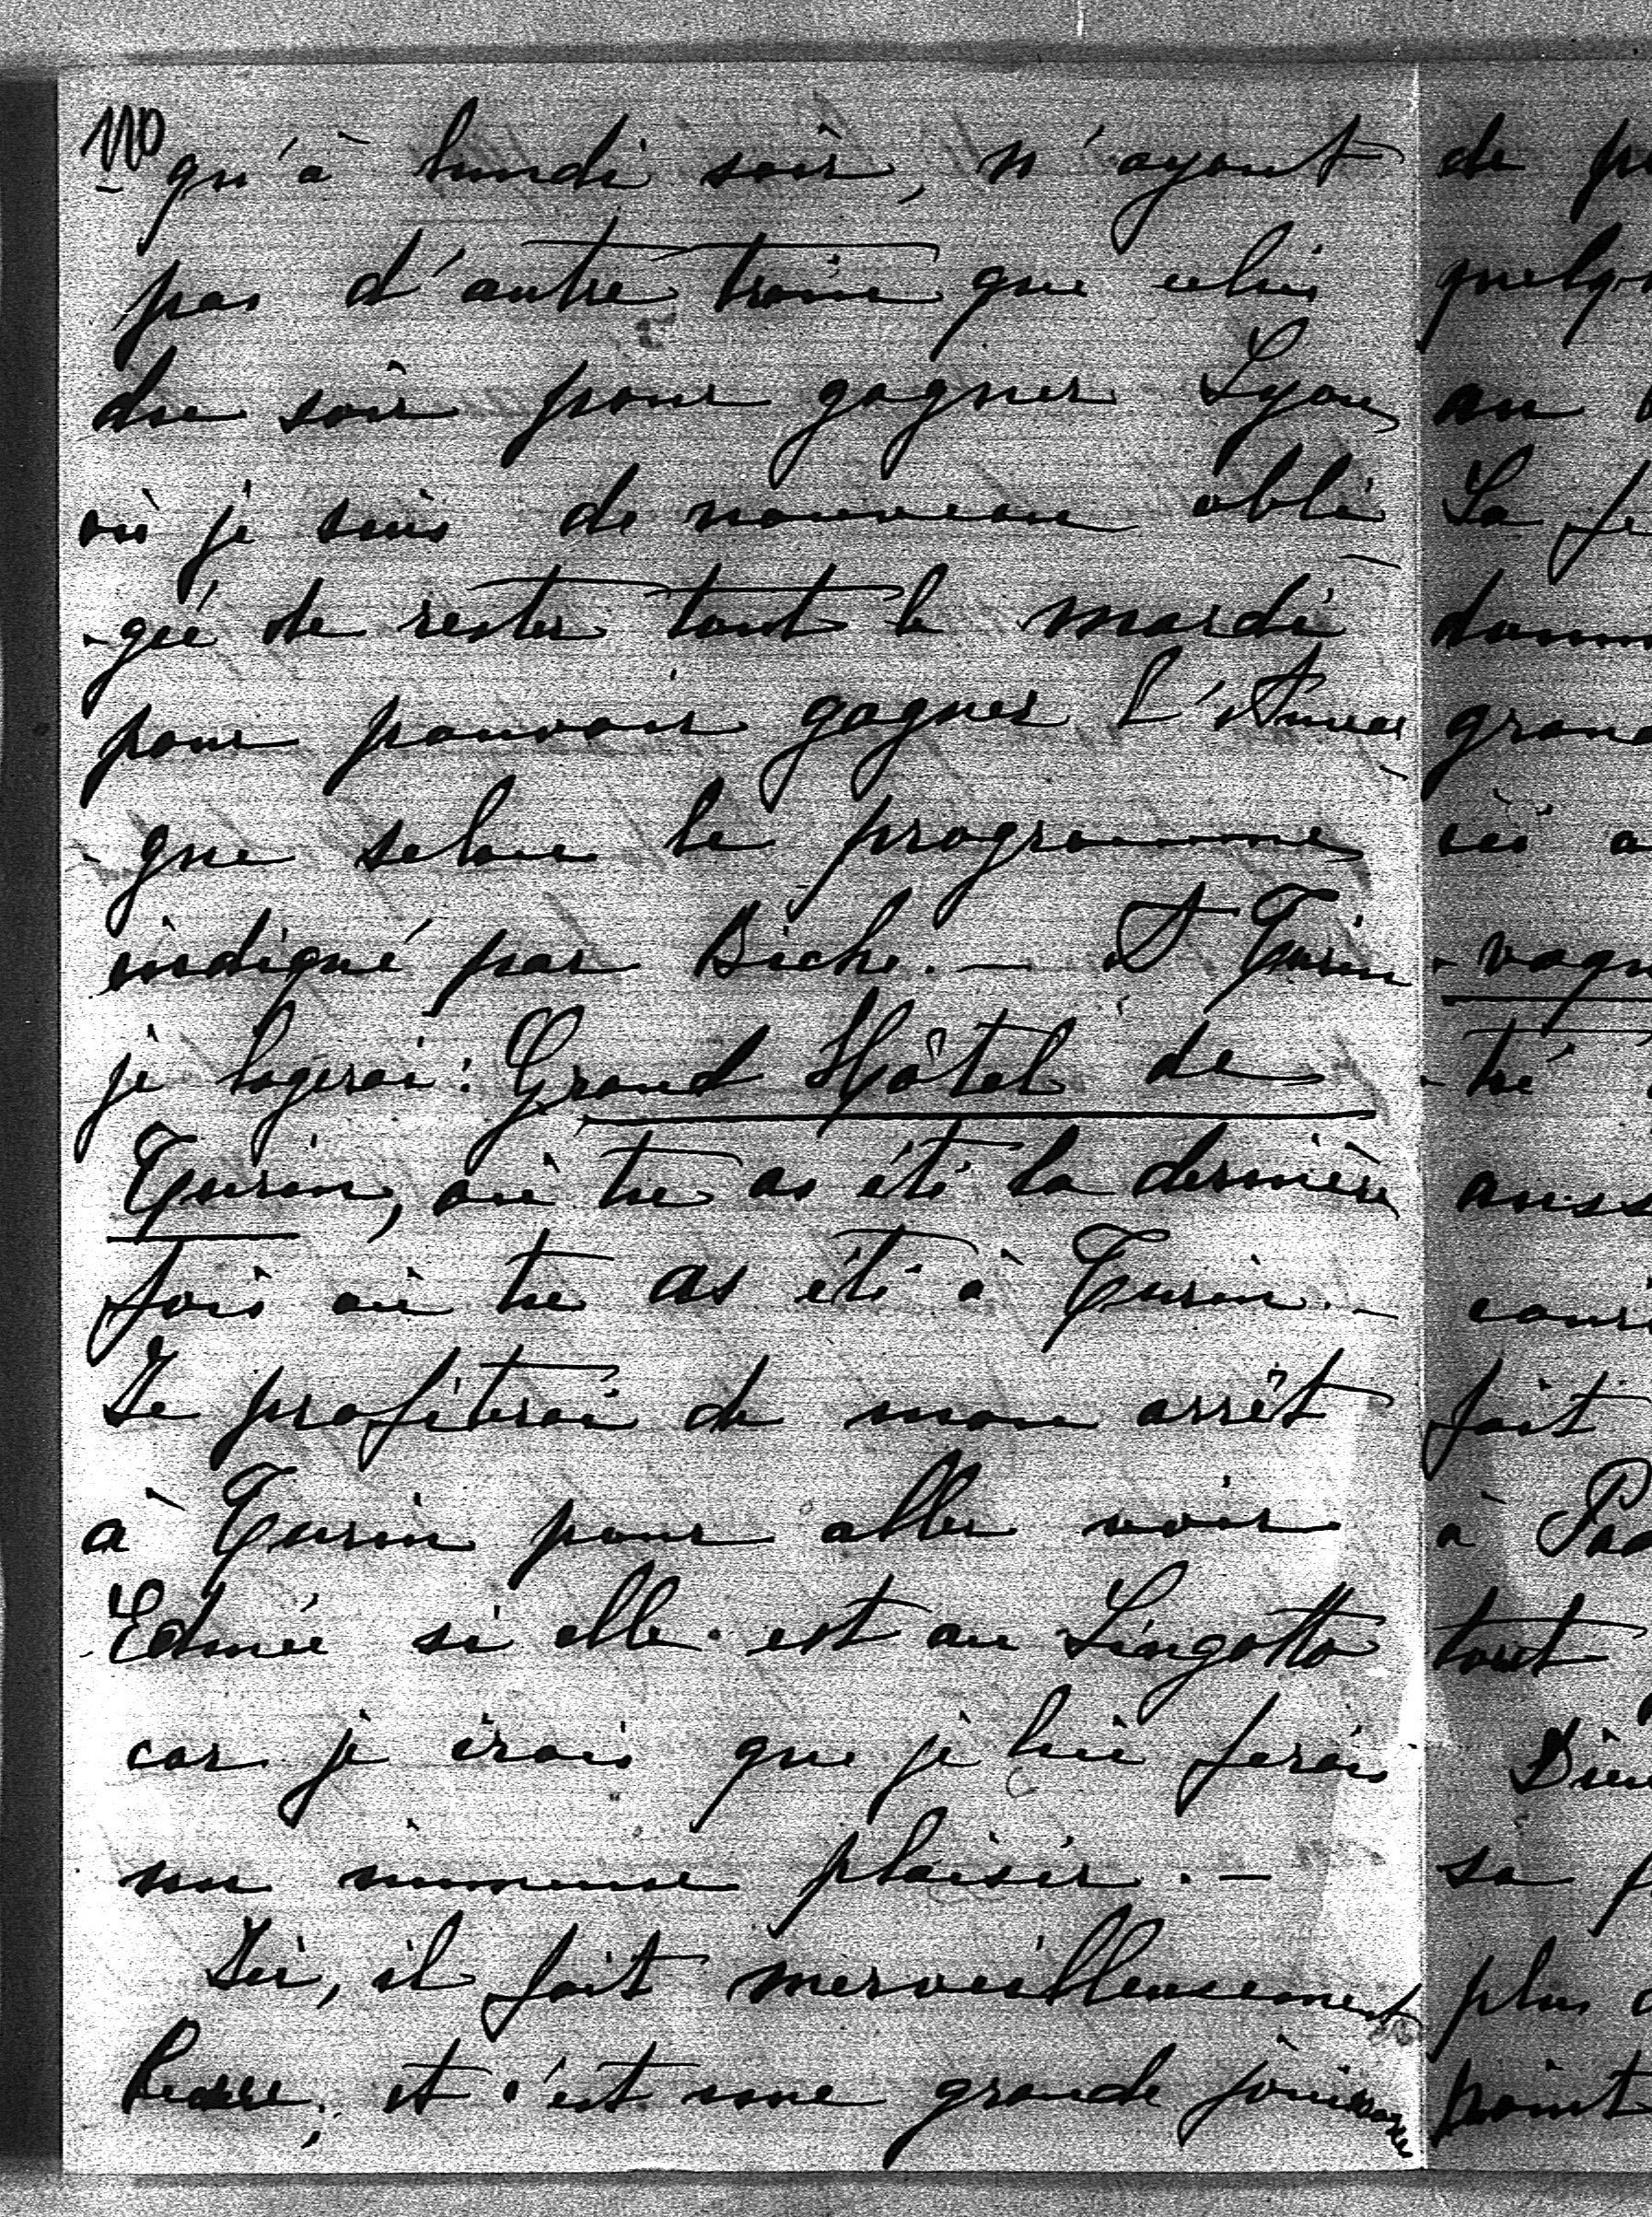 110
qu'à lundi soir, n'ayant
pas d'autre train que celui
du soir pour gagner Lyon,
où je suis de nouveau obli-
-gé de rester tout le mardi
pour pouvoir gagner l'Auver-
-gne selon le programme
indiqué par Biche. — A Turin
je logerai : Grand Hôtel de
Turin, où tu as été la dernière
fois où tu as été à Turin. —
Je profiterai de mon arrêt
à Turin pour aller voir
Edmée si elle est au Lingotto
car je crois que je lui ferais
un immense plaisir. —
Ici, il fait merveilleusement
beau, et c'est une grande jouissance
de
au
La
ici
-tré
fait
à
tout
sa
plus
point